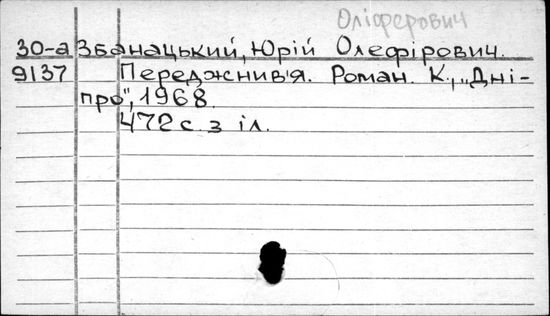 Оліферович
30-а Збанацький, Юрій Олефірович.
9137 Переджнив'я. Роман. К., „Дні-
про", 1968.
472 с. з іл.